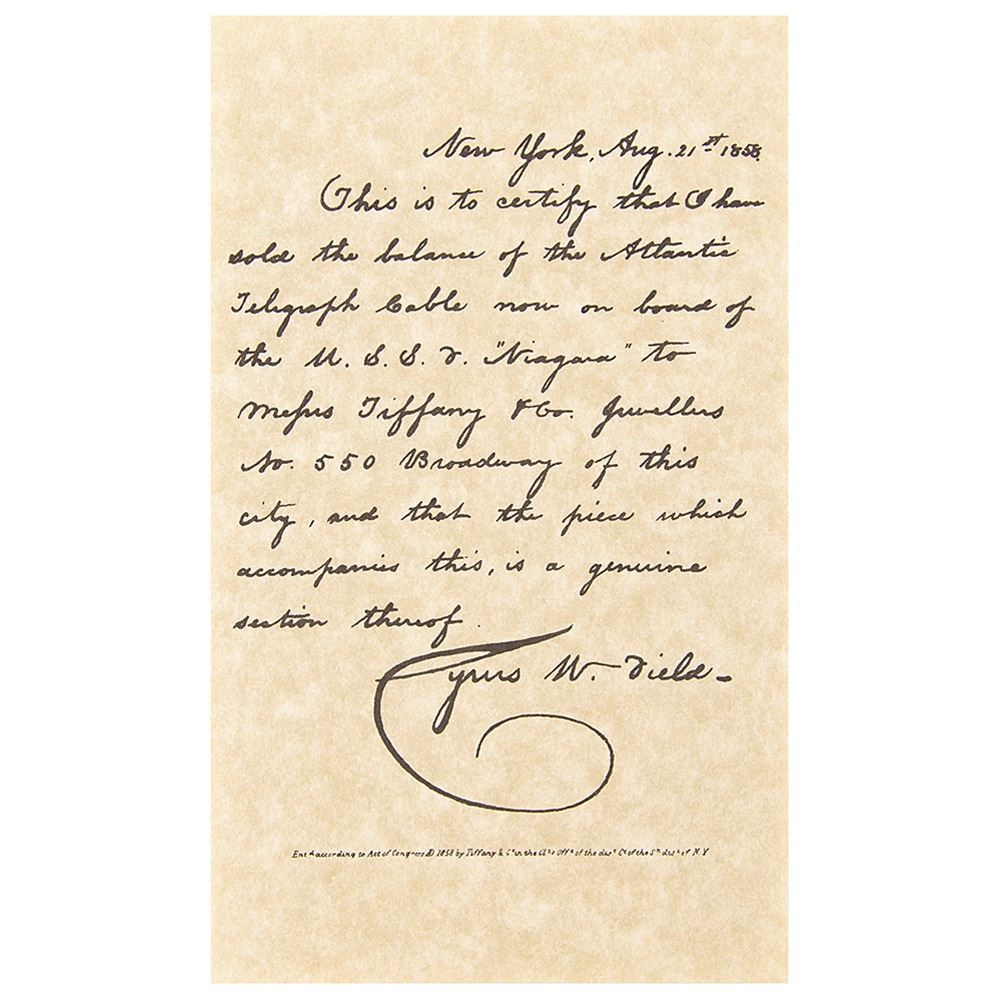 New York, Aug. 21st 1858.
This is to certify that I have
sold the balance of the Atlantic
Telegraph Cable now on board of
the U. S. S. F. "Niagara" to
Messrs Tiffany & Co. Jewellers
No. 550 Broadway of this
city, and that the piece which
accompanies this, is a genuine
section thereof.
Cyrus W. Field
Entd according to Act of Congress AD 1858 by Tiffany & Co in the Clks Offe of the dist Ct of the Sn dist of N.Y.